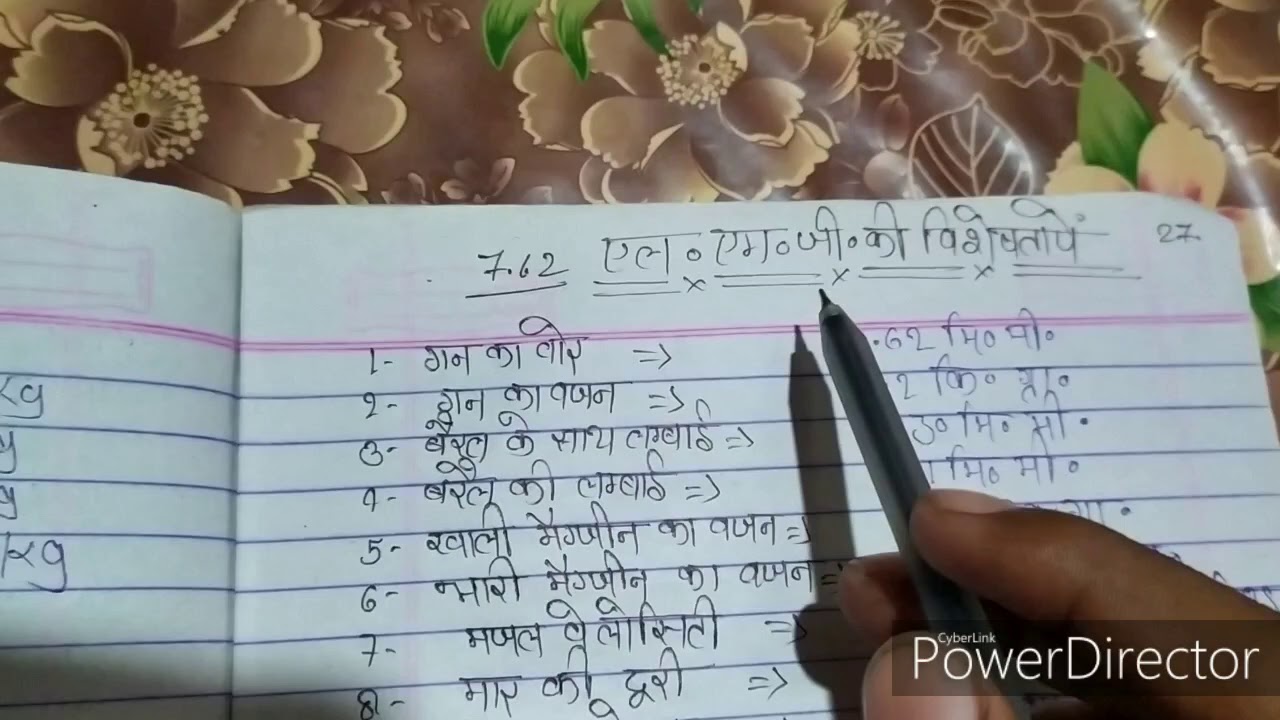 7.62 एल०एम०जी०की विशेषतायें 27
1- गन का वोर => .62 मि० मी०
2- गन का वजन => 2 कि० ग्रा०
3- बैरल के साथ लम्बाई => मि० मी०
4- बैरल की लम्बाई => मि० मी०
5- खाली मैगजीन का वजन =>
6- भारी मैगजीन का वजन =
7- मजल वेलोसिटी =>
8- मार की दूरी =>
kg
y
y
kg
CyberLink
PowerDirector